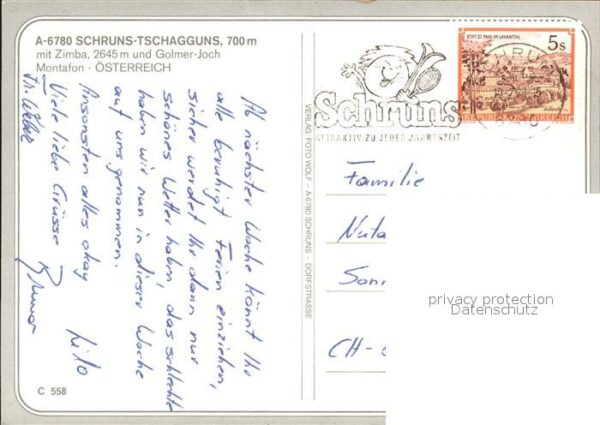 A-6780 SCHRUNS-TSCHAGGUNS, 700 m
mit Zimba, 2645 m und Golmer-Joch
Montafon - ÖSTERREICH
Ab nächster Woche könnt Ihr
alle beruhigt Ferien einziehen,
sicher werdet Ihr dann nur
schönes Wetter haben, das schlechte
haben wir nun in dieser Woche
auf uns genommen.
Ansonsten alles okay
Viele liebe Grüsse
Lilo
C 558
VERLAG FOTO WOLF - A-6780 SCHRUNS - DORFSTRASSE
Schruns
ATTRAKTIV ZU JEDER JAHRESZEIT
STIFT ST. PAUL IM LAVANTTAL
5s
REPUBLIK ÖSTERREICH
Familie
CH-
privacy protection
Datenschutz